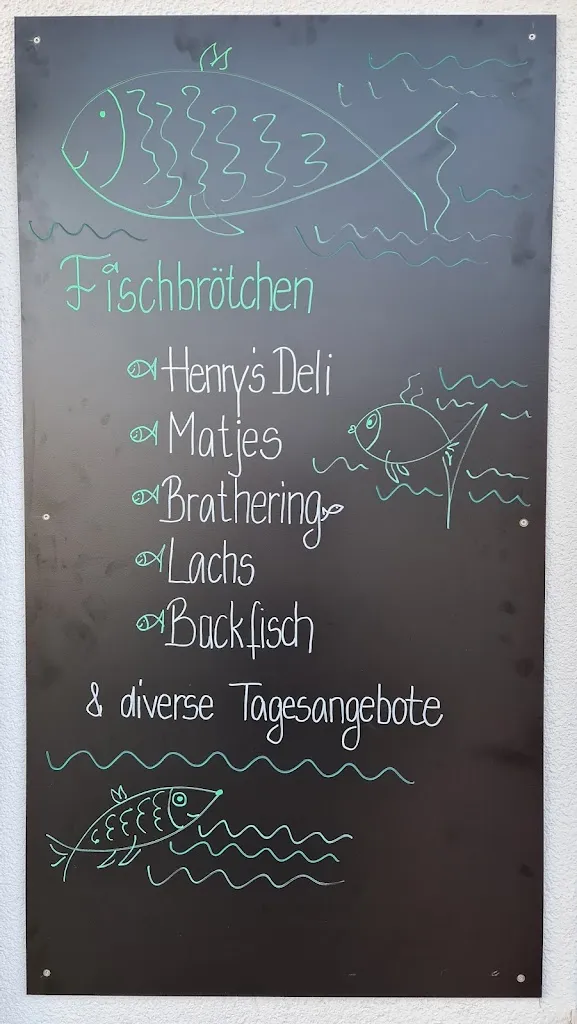 Fischbrötchen
Henry's Deli
Matjes
Brathering
Lachs
Backfisch
& diverse Tagesangebote